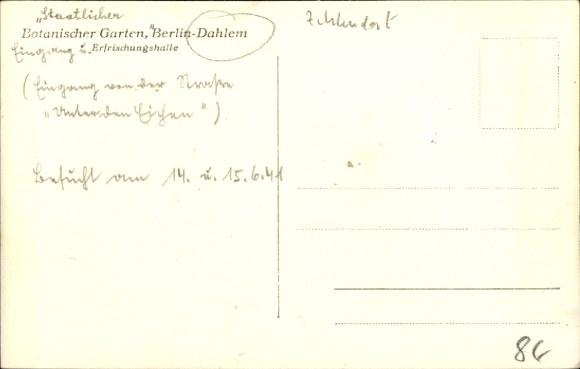 „Staatlicher
Botanischer Garten," Berlin-Dahlem
Eingang u. Erfrischungshalle
(Eingang von der Straße
„Unter den Eichen")
Besucht am 14. u. 15.6.41
Zehlendorf
86